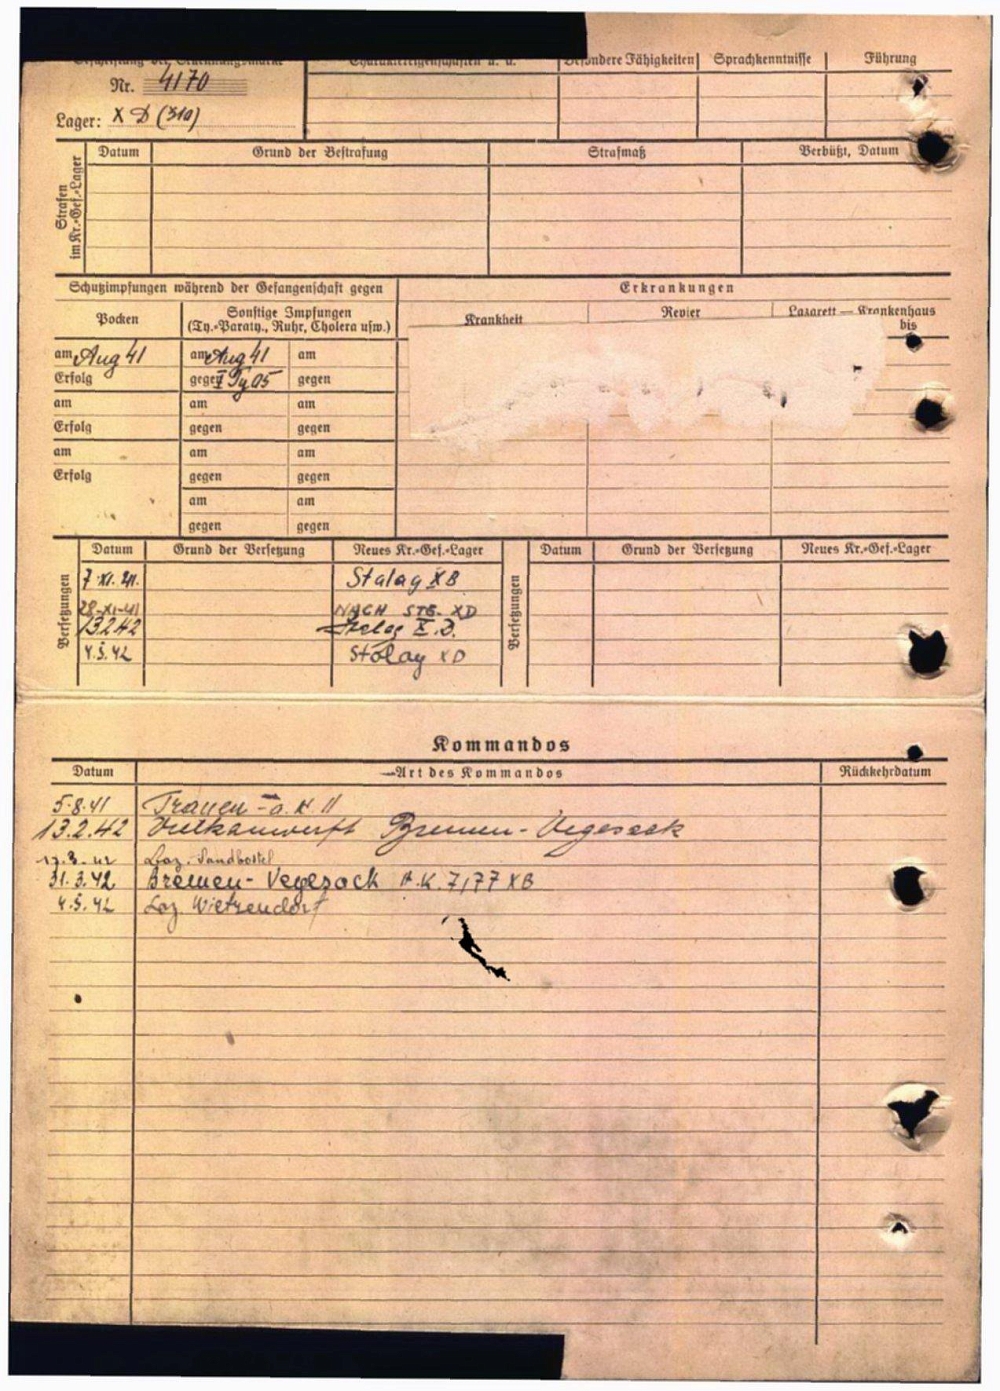 Beschriftung der Erkennungsmarke
Nr. 4170
Lager: X D (310)
Charaktereigenschaften u. ä.
Besondere Fähigkeiten
Sprachkenntnisse
Führung
Strafen im Kr.-Gef.-Lager
Datum
Grund der Bestrafung
Strafmaß
Verbüßt, Datum
Schutzimpfungen während der Gefangenschaft gegen
Erkrankungen
Pocken
Sonstige Impfungen
(Ty.-Paraty., Ruhr, Cholera usw.)
Krankheit
Revier
Lazarett — Krankenhaus
bis
am Aug 41 am Aug 41 am
Erfolg gegen Ty 05 gegen
am am am
Erfolg gegen gegen
am am am
Erfolg gegen gegen
am am
gegen gegen
Versetzungen
Datum Grund der Versetzung Neues Kr.-Gef.-Lager
7.XI.41. Stalag XB
28-XI-41 NACH STG. XD
13.2.42 Stalag X.D.
4.5.42 Stalag XD
Versetzungen
Datum Grund der Versetzung Neues Kr.-Gef.-Lager
Kommandos
Datum Art des Kommandos Rückkehrdatum
5.8.41 Trauen - a. K. 11
13.2.42 Vulkanwerft Bremen-Vegesack
Laz. Sandbostel
31.3.42 Bremen-Vegesack A.K. 7177 XB
4.5.42 Laz. Wietzendorf